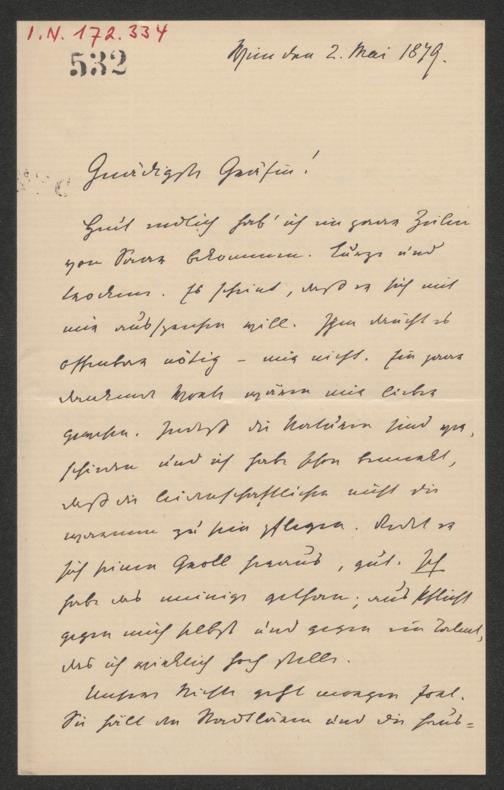 I.N. 172.334
532
Wien den 2. Mai 1879.
Gnädigste Gräfin!
Heut endlich hab' ich ein paar Zeilen
von Saar bekommen. Kurze und
trockene. Es scheint, daß er sich mit
mir aussprechen will. Ihm deucht es
offenbar nötig – mir nicht. Ein paar
dankende Worte wären mir lieber
gewesen. Indeß die Naturen sind ver,
schieden und ich habe schon bemerkt,
daß die leidenschaftlichen nicht die
warmen zu sein pflegen. Redet er
sich seinen Groll heraus, gut. Ich
habe das meinige gethan; aus Pflicht
gegen mich selbst und gegen ein Talent,
das ich wirklich hoch stelle.
Unsere Nichte geht morgen fort.
Sie hält den Stadtlärm und die Haus=